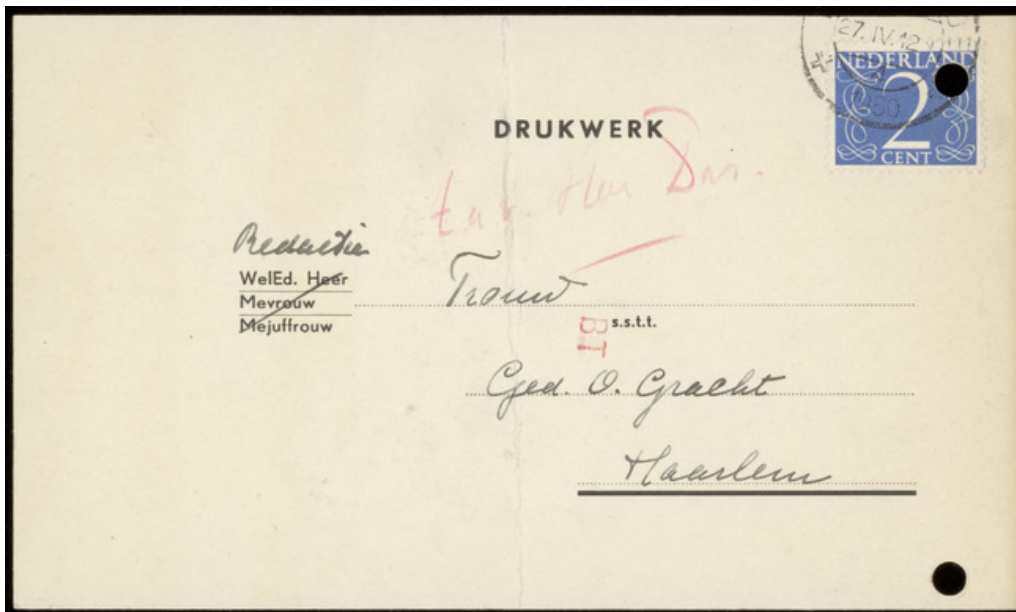 27.IV.12
1950
NEDERLAND
2
CENT
DRUKWERK
t.a.v. Hr Das.
Redactie
WelEd. Heer
Mevrouw
Mejuffrouw
Trouw
s.s.t.t.
BT
Ged. O. Gracht
Haarlem